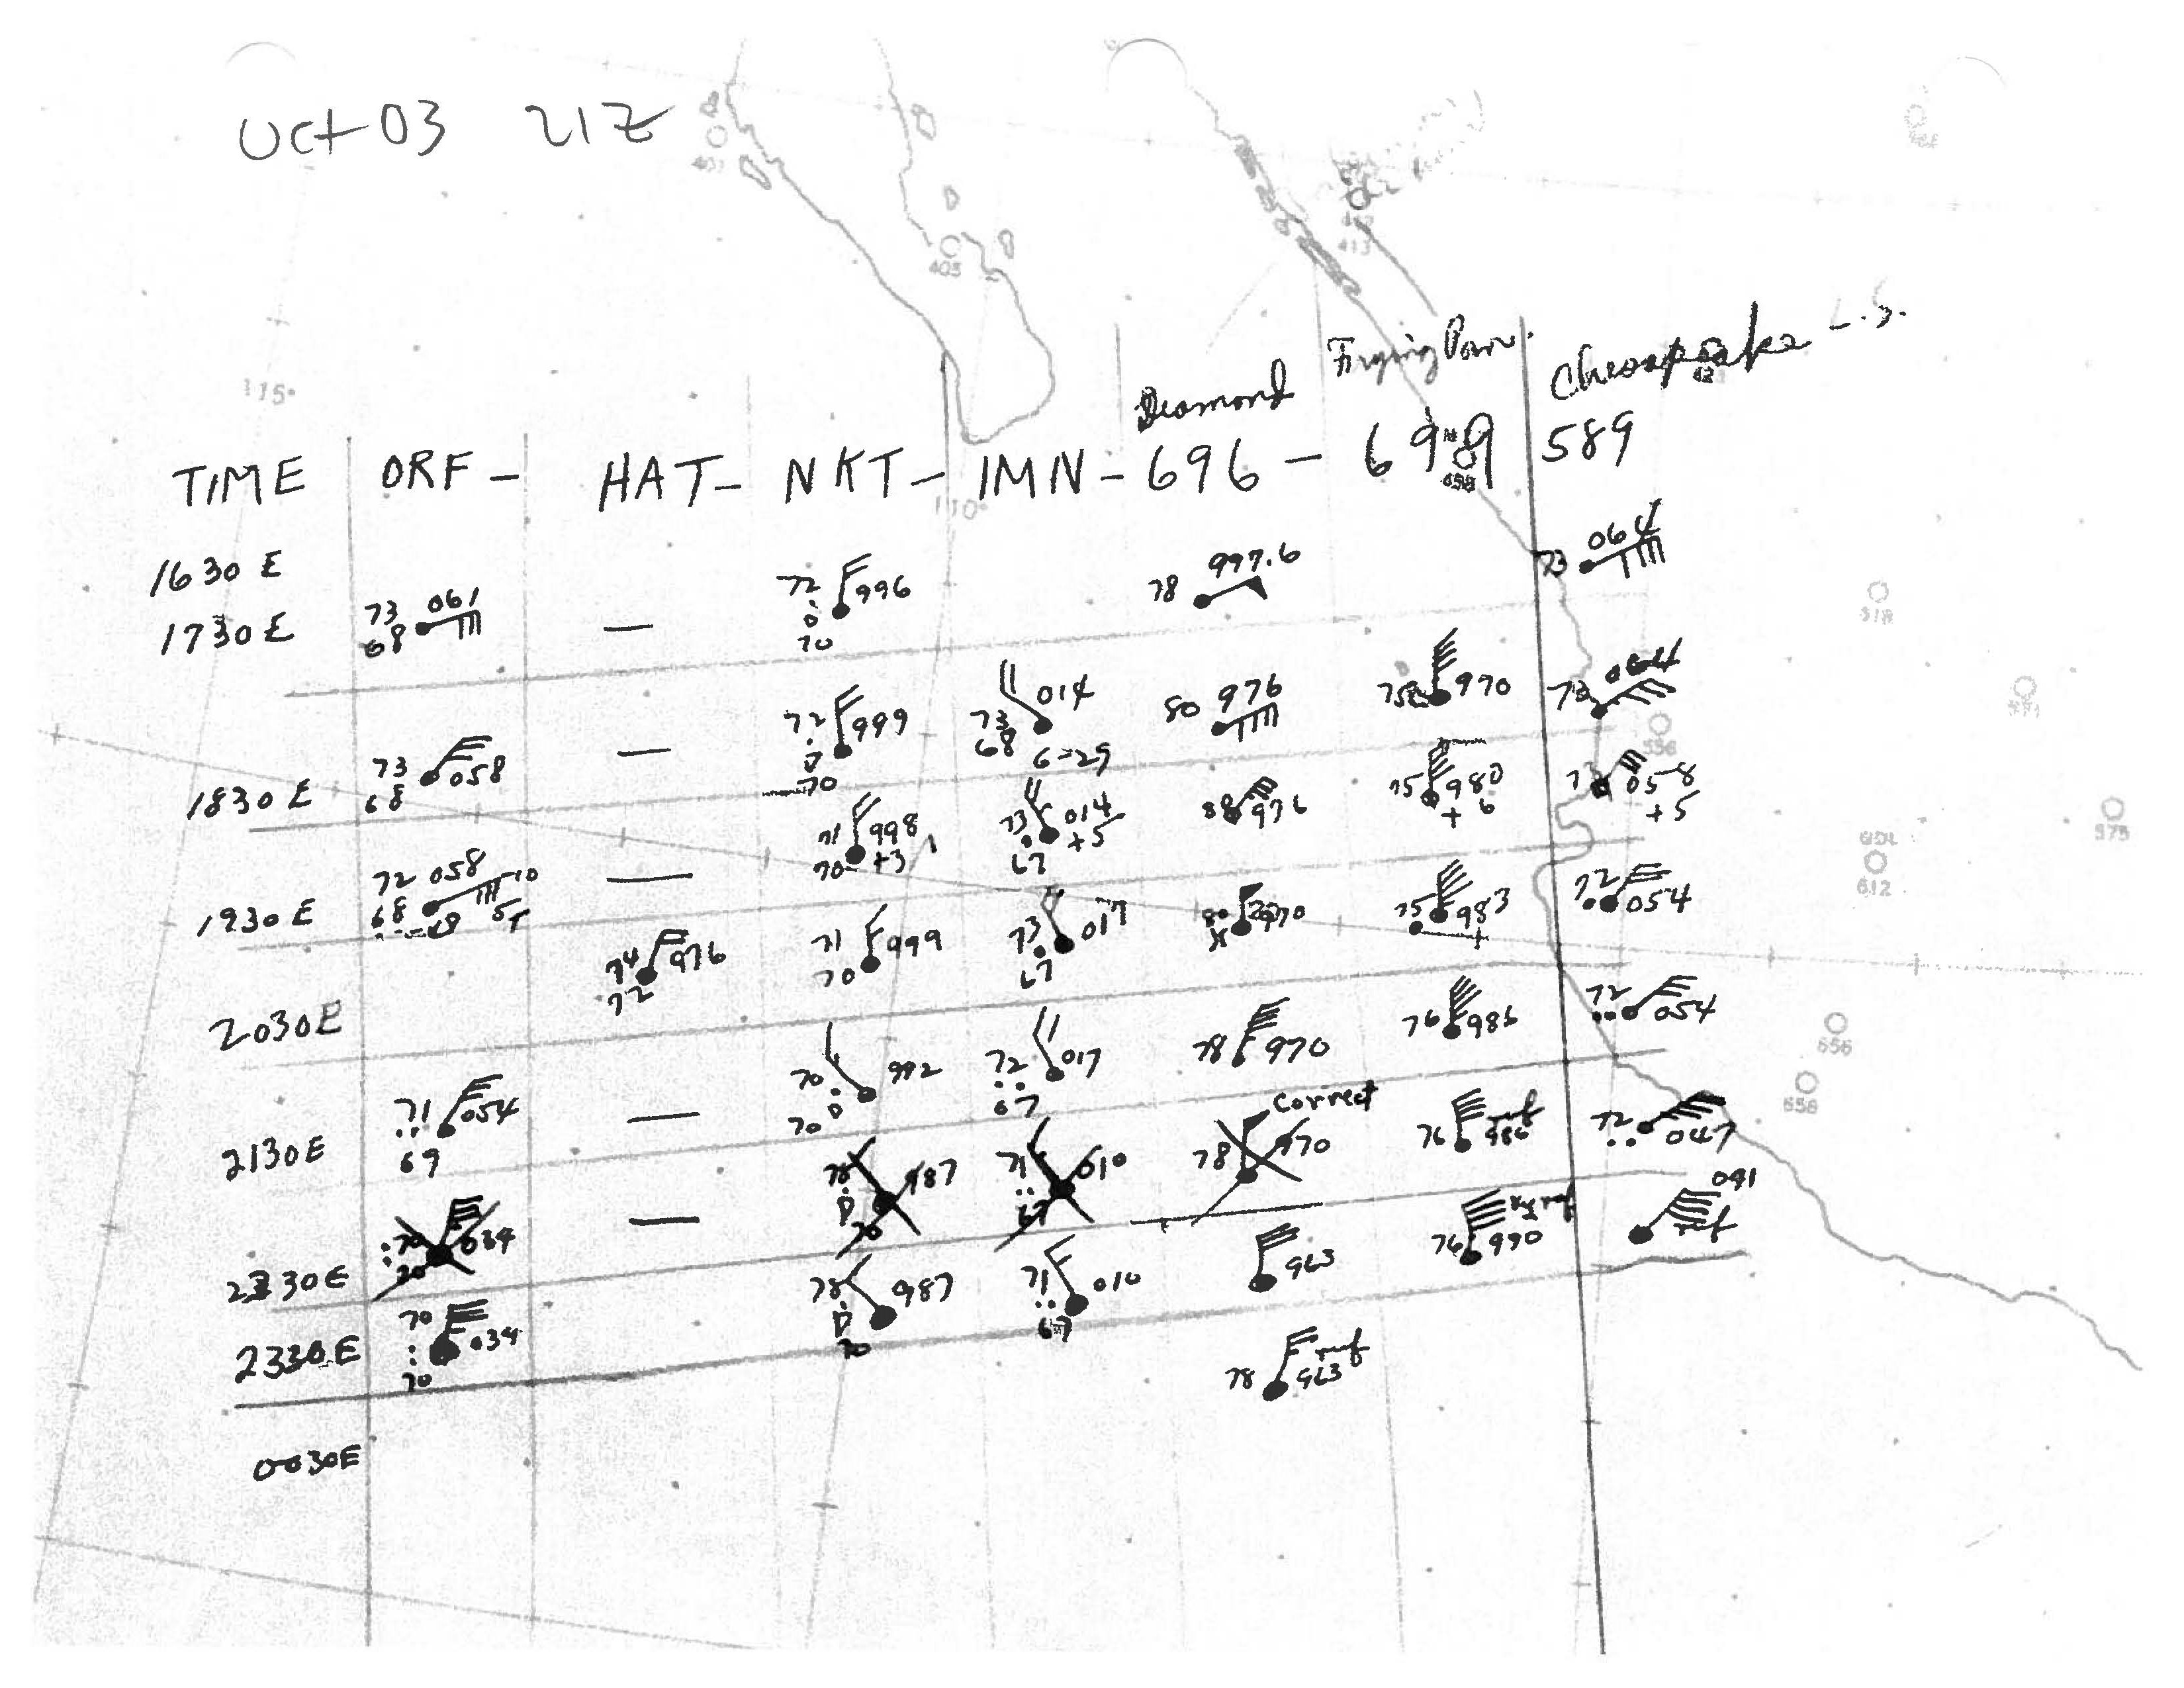 Oct 03 21Z
Diamond Frying Pan. Chesapeake L.S.
TIME ORF - HAT - NKT - IMN - 696 - 699 589
115°
110°
401
405
413
1630 E
72 996 70
78 997.6
73 064
1730 E
73 061 68
—
72 999 70
73 014 68 6-29
80 976
75 970
73 064
1830 E
73 058 68
—
71 998 70 +3
73 014 67 +5
976
75 980 +6
058 +5
1930 E
72 058 10 68
—
71 999 70
73 017 67
80 970
75 983
72 054
2030E
74 976 72
70 992 70
72 017 67
78 970
76 986
72 054
2130E
71 054 69
—
987 70
71 010 67
78 970 correct
76 986 ruf
72 047
2230E
70 034 70
—
78 987 70
71 010 67
963
76 990 ruf
041 ruf
2330E
70 034 70
78 963 ruf
0030E
518
556
575
612
656
658